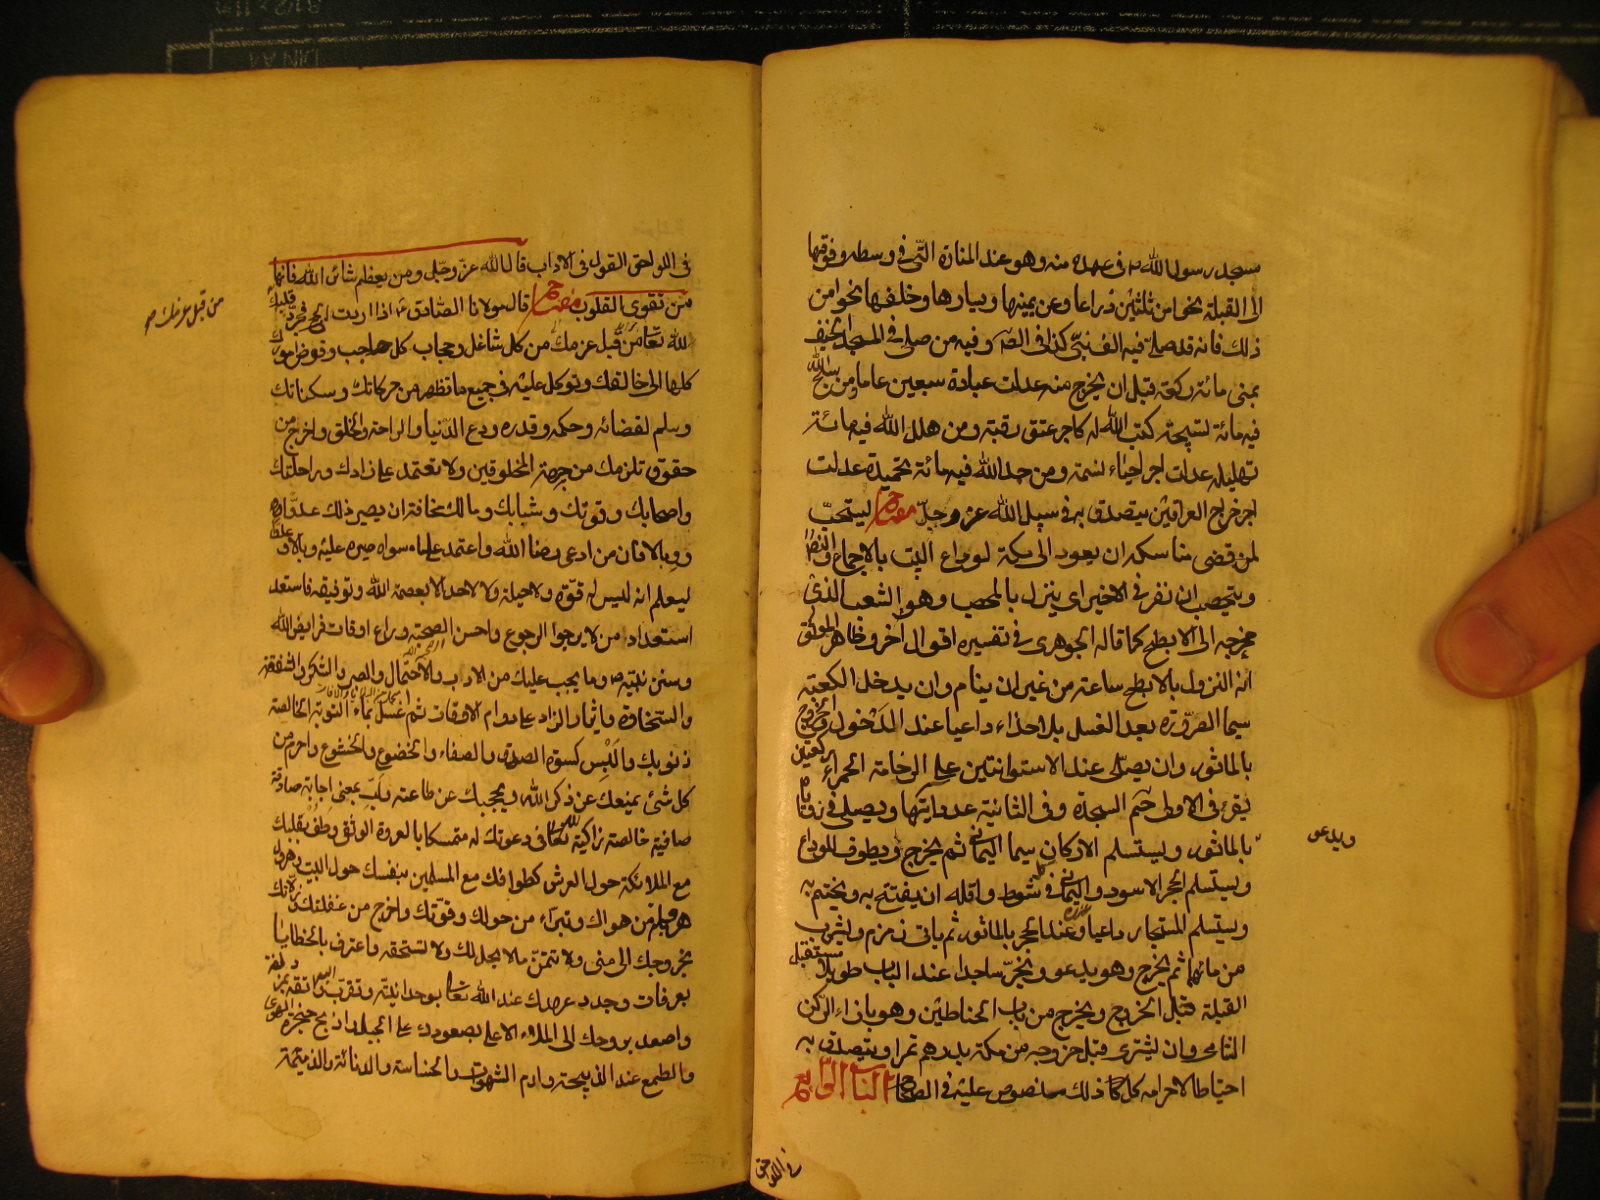 مسجد رسول الله ص في عهده منه وهو عند المنارة التي في وسطه وفوقها
الى القبلة نحوا من ثلثين ذراعا وعن يمينها ويسارها وخلفها نحوا من
ذلك فانه قد صلى فيه الف نبي كذا في الصه وفيه من صلى في المسجد الخيف
بمنى مائة ركعة قبل ان يخرج منه عدلت عبادة سبعين عاما ومن سبح الله
فيه مائة تسبيحة كتب الله له كاجر عتق رقبة ومن هلل الله فيه مائة
تهليلة عدلت اجر احياء نسمة ومن حمد الله فيه مائة تحميدة عدلت
اجر خراج العراقين يتصدق به في سبيل الله عز وجل مفتاح يستحب
لمن قضى مناسكه ان يعود الى مكة لوداع البيت بالاجماع والنص
ان نفر في الاخير اي ينزل بالمحصب وهو الشعب الذي
مخرجه الى الابطح كما قاله الجوهري وفي تفسيره اقوال اخر وظاهر الموثق
انه النزول بالابطح ساعة من غير ان ينام وان يدخل الكعبة
سيما الصرورة بعد الغسل بلا حذاء داعيا عند الدخول والخروج
بالماثور وان يصلي عند الاستوانتين على الرخامة الحمراء ركعتين
يقرء في الاولى حم السجدة وفي الثانية عدد ايتها ويصلي في زواياها
بالماثور ويستسلم الاركان سيما اليماني ثم يخرج ويطوف للوداع
ويدعو
ويستسلم الحجر الاسود واليماني في كل شوط واقله ان يفتتح به ويختم به
ويستسلم المستجار داعيا عنده وعند الحجر بالماثور ثم ياتي زمزم ويشرب
من مائها ثم يخرج وهو يدعو ويخر ساجدا عند الباب طويلا مستقبل
القبلة قبل الخروج ويخرج من باب الحناطين وهو بازاء الركن
الشامي وان يشتري قبل خروجه من مكة بدرهم تمرا ويتصدق به
احتياطا لاحرامه كل ذلك منصوص عليه في الصحاح الباب الرابع
في اللواحق
في اللواحق القول في الاداب قال الله عز وجل ومن يعظم شعائر الله فانها
من تقوى القلوب مفتاح قال مولانا الصادق ع اذا اردت الحج فجرد قلبك
لله تعا من قبل عزمك من كل شاغل وحجاب كل حاجب وفوض امورك
من قبل عزمك صح
كلها الى خالقك وتوكل عليه في جميع ما تظهر من حركاتك وسكناتك
وسلم لقضائه وحكمه وقدره ودع الدنيا والراحة والخلق واخرج من
حقوق تلزمك من جهة المخلوقين ولا تعتمد على زادك وراحلتك
واصحابك وقوتك وشبابك ومالك مخافة ان يصير ذلك عدوا
ووبالا فان من ادعى رضا الله واعتمد على ما سواه صيره عليه وبالا وعدوا
ليعلم انه ليس له قوة ولا حيلة ولا لاحد الا بعصمة الله وتوفيقه فاستعد
استعداد من لا يرجوا الرجوع واحسن الصحبة وراع اوقات فرايض الله
وسنن نبيه ص وما يجب عليك من الاداب والاحتمال والصبر والشكر والشفقة
والسخاوة وايثار الزاد على دوام الاوقات ثم اغسل بماء التوبة الخالصة
ذنوبك والبس كسوة الصدق والصفاء والخضوع والخشوع واحرم من
كل شئ يمنعك عن ذكر الله ويحجبك عن طاعته ولب بمعنى اجابة صادقة
صافية خالصة زاكية لله تعا في دعوتك له متمسكا بالعروة الوثقى وطف بقلبك
مع الملائكة حول العرش كطوافك مع المسلمين بنفسك حول البيت وهرول
هرولة من هواك وتبرأ من حولك وقوتك واخرج من غفلتك وزلاتك
بخروجك الى منى ولا تتمن ما لا يحل لك ولا تستحقه واعترف بالخطايا
بعرفات وجدد عهدك عند الله تعا بوحدانيته وتقرب اليه واتقه بمزدلفة
واصعد بروحك الى الملاء الاعلى بصعودك على الجبل واذبح حنجرة الهوى
والطمع عند الذبيحة وارم الشهوات والخساسة والدنائة والذميمة